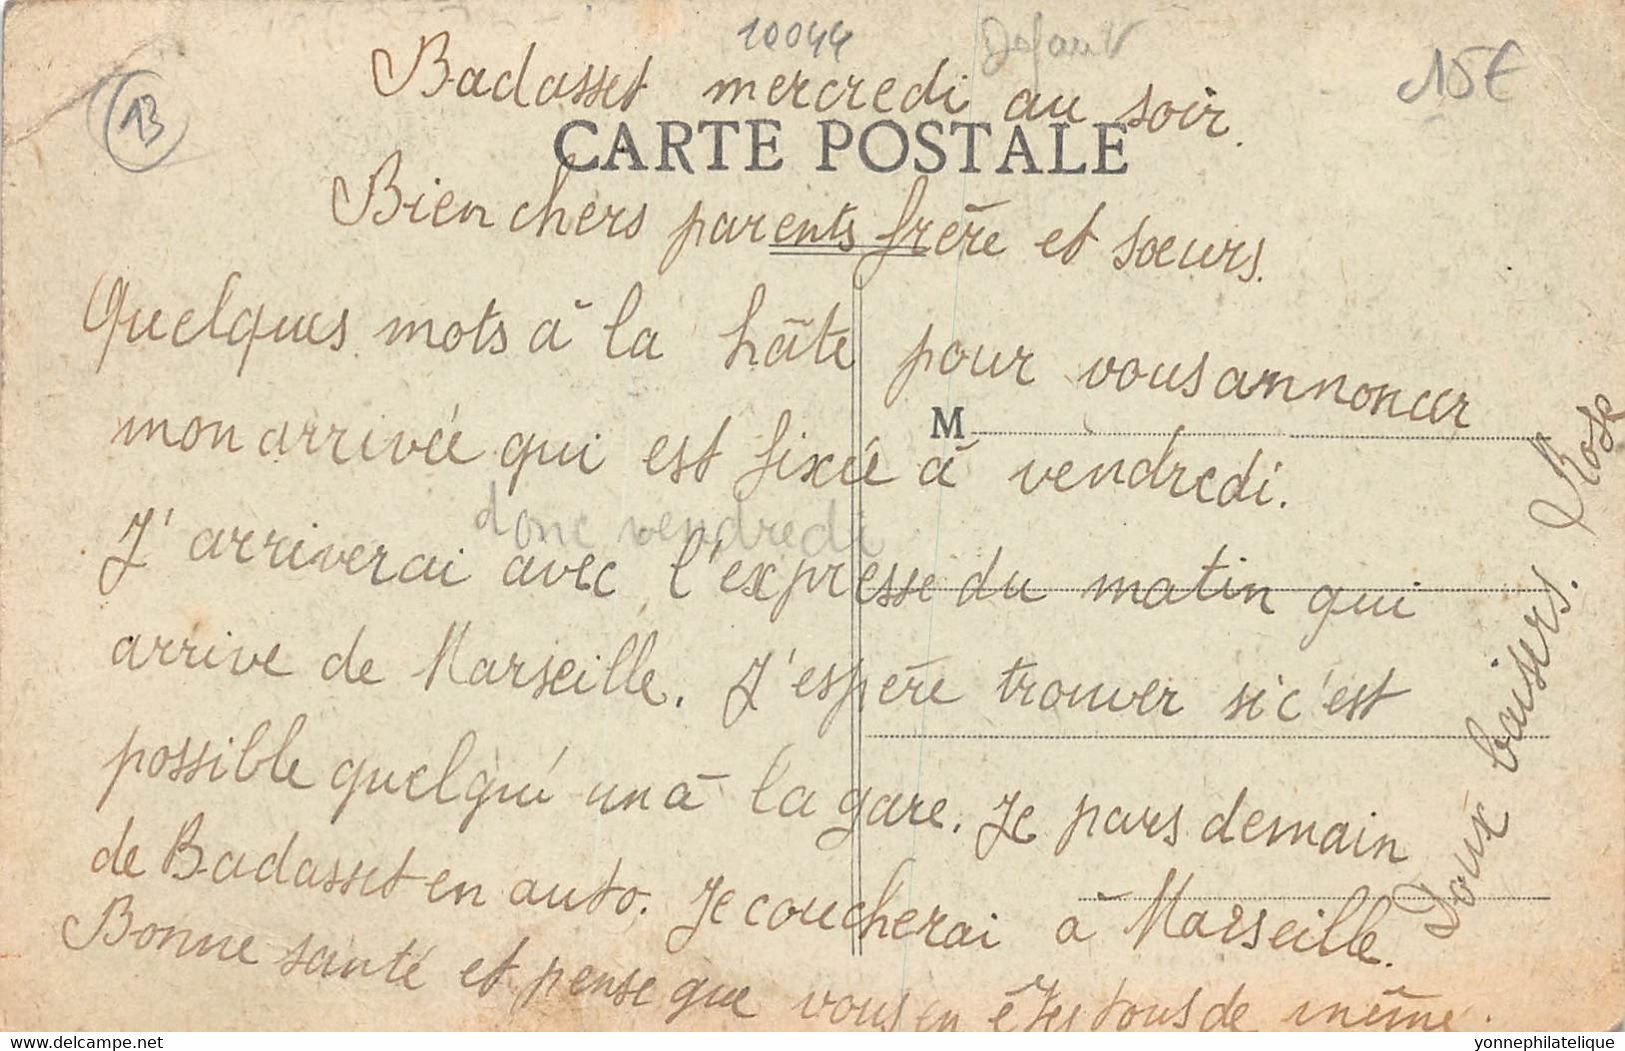 10044
Defaut
15€
13
Badasset mercredi au soir.
CARTE POSTALE
Bien chers parents frère et sœurs.
Quelques mots à la hâte pour vous annoncer
M
mon arrivée qui est fixée à vendredi.
donc vendredi
J'arriverai avec l'expresse du matin qui
arrive de Marseille. J'espère trouver si c'est
possible quelqu'un à la gare. Je pars demain
de Badasset en auto. Je coucherai à Marseille.
Bonne santé et pense que vous en êtes tous de même.
Doux baisers. Rose
delcampe.net
yonnephilatelique